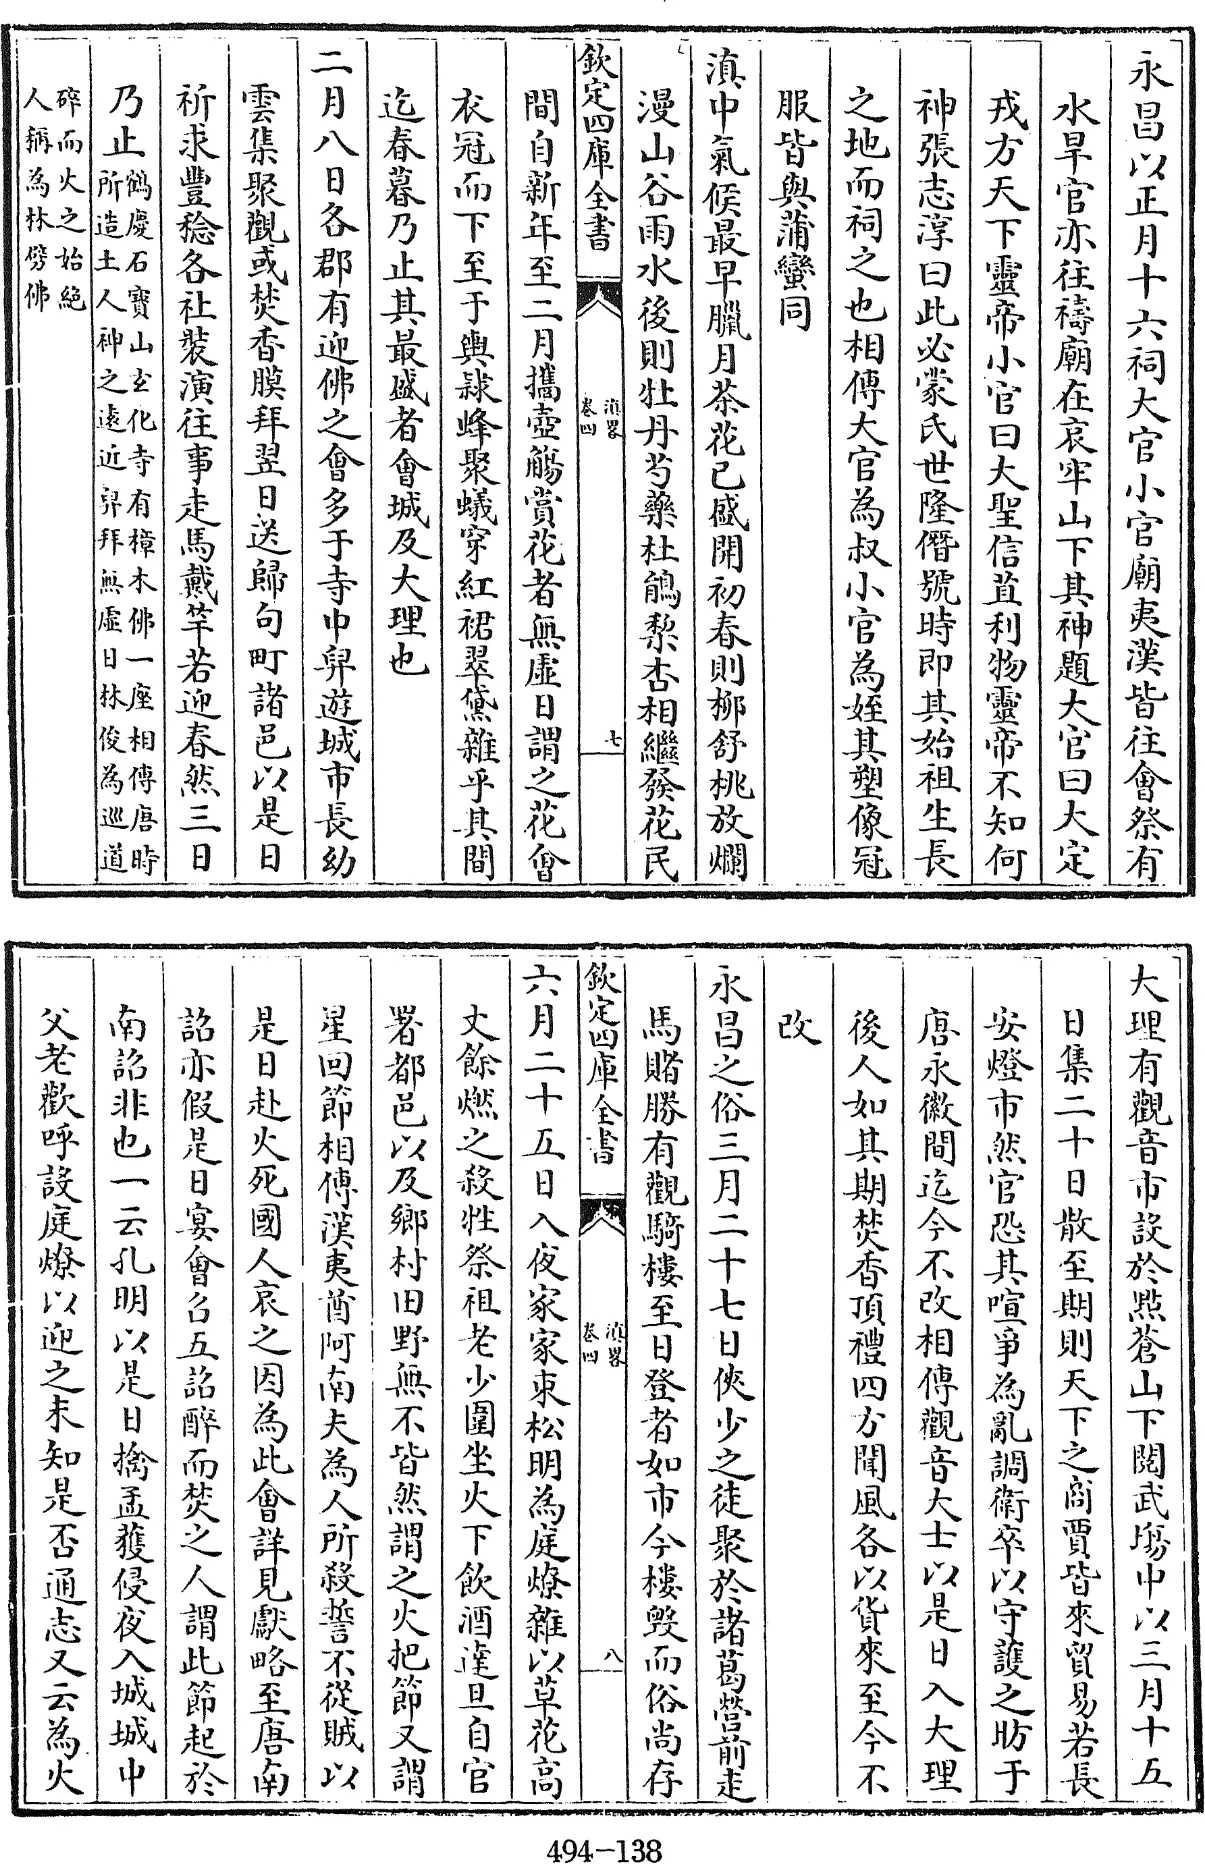 永昌以正月十六祠大官小官廟夷漢皆往會祭有
水旱官亦往禱廟在哀牢山下其神題大官曰大定
戎方天下靈帝小官曰大聖信苴利物靈帝不知何
神張志淳曰此必蒙氏世隆僭號時即其始祖生長
之地而祠之也相傳大官為叔小官為姪其塑像冠
服皆與蒲蠻同
滇中氣候最早臘月茶花已盛開初春則柳舒桃放爛
漫山谷雨水後則牡丹芍藥杜鵑梨杏相繼發花民
欽定四庫全書
滇畧
卷四
七
間自新年至二月攜壺觴賞花者無虛日謂之花會
衣冠而下至于輿隸蜂聚蟻穿紅裙翠黛雜乎其間
迄春暮乃止其最盛者會城及大理也
二月八日各郡有迎佛之會多于寺中舁遊城市長幼
雲集聚觀或焚香膜拜翌日送歸句町諸邑以是日
祈求豐稔各社裝演往事走馬戴竿若迎春然三日
乃止
鶴慶石寶山玄化寺有樟木佛一座相傳唐時
所造土人神之遠近舁拜無虛日林俊為巡道
碎而火之始絕
人稱為林劈佛
大理有觀音市設於㸃蒼山下閱武場中以三月十五
日集二十日散至期則天下之商賈皆來貿易若長
安燈市然官恐其喧爭為亂調衛卒以守護之昉于
唐永徽間迄今不改相傳觀音大士以是日入大理
後人如其期焚香頂禮四方聞風各以貨來至今不
改
永昌之俗三月二十七日俠少之徒聚於諸葛營前走
馬賭勝有觀騎樓至日登者如市今樓毀而俗尚存
欽定四庫全書
滇畧
卷四
八
六月二十五日入夜家家束松明為庭燎雜以草花高
丈餘燃之殺牲祭祖老少圍坐火下飲酒達旦自官
署都邑以及鄉村田野無不皆然謂之火把節又謂
星回節相傳漢夷酋阿南夫為人所殺誓不從賊以
是日赴火死國人哀之因為此會詳見獻略至唐南
詔亦假是日宴會召五詔醉而焚之人謂此節起於
南詔非也一云孔明以是日擒孟獲侵夜入城城中
父老歡呼設庭燎以迎之未知是否通志又云為火
494-138